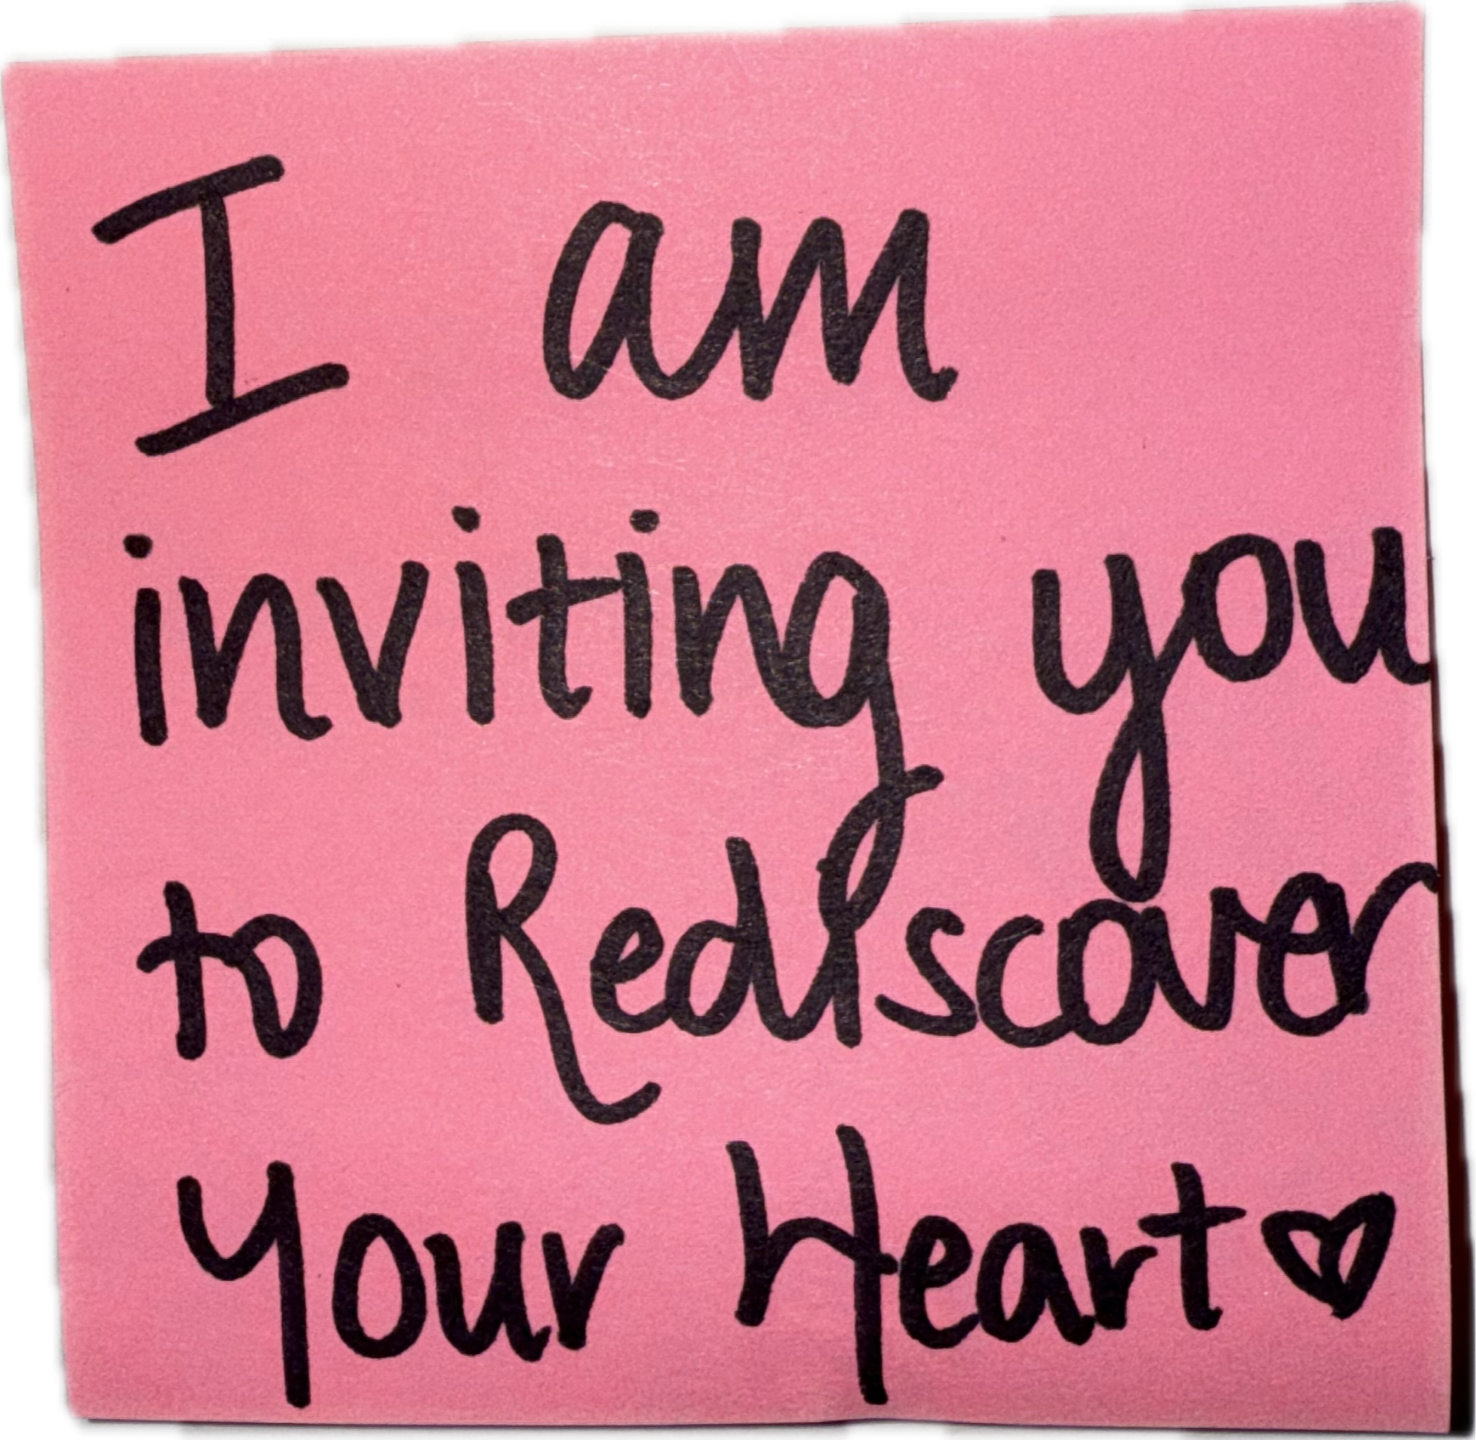 I am
inviting you
to Rediscover
Your Heart♡